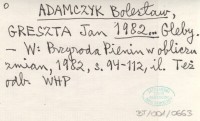 ADAMCZYK Bolesław,
GRESZTA Jan 1982. Gleby.
- W: Przyroda Pienin w obliczu
zmian, 1982, s. 94-112, il. Też
odb. WHP
37/001/0663